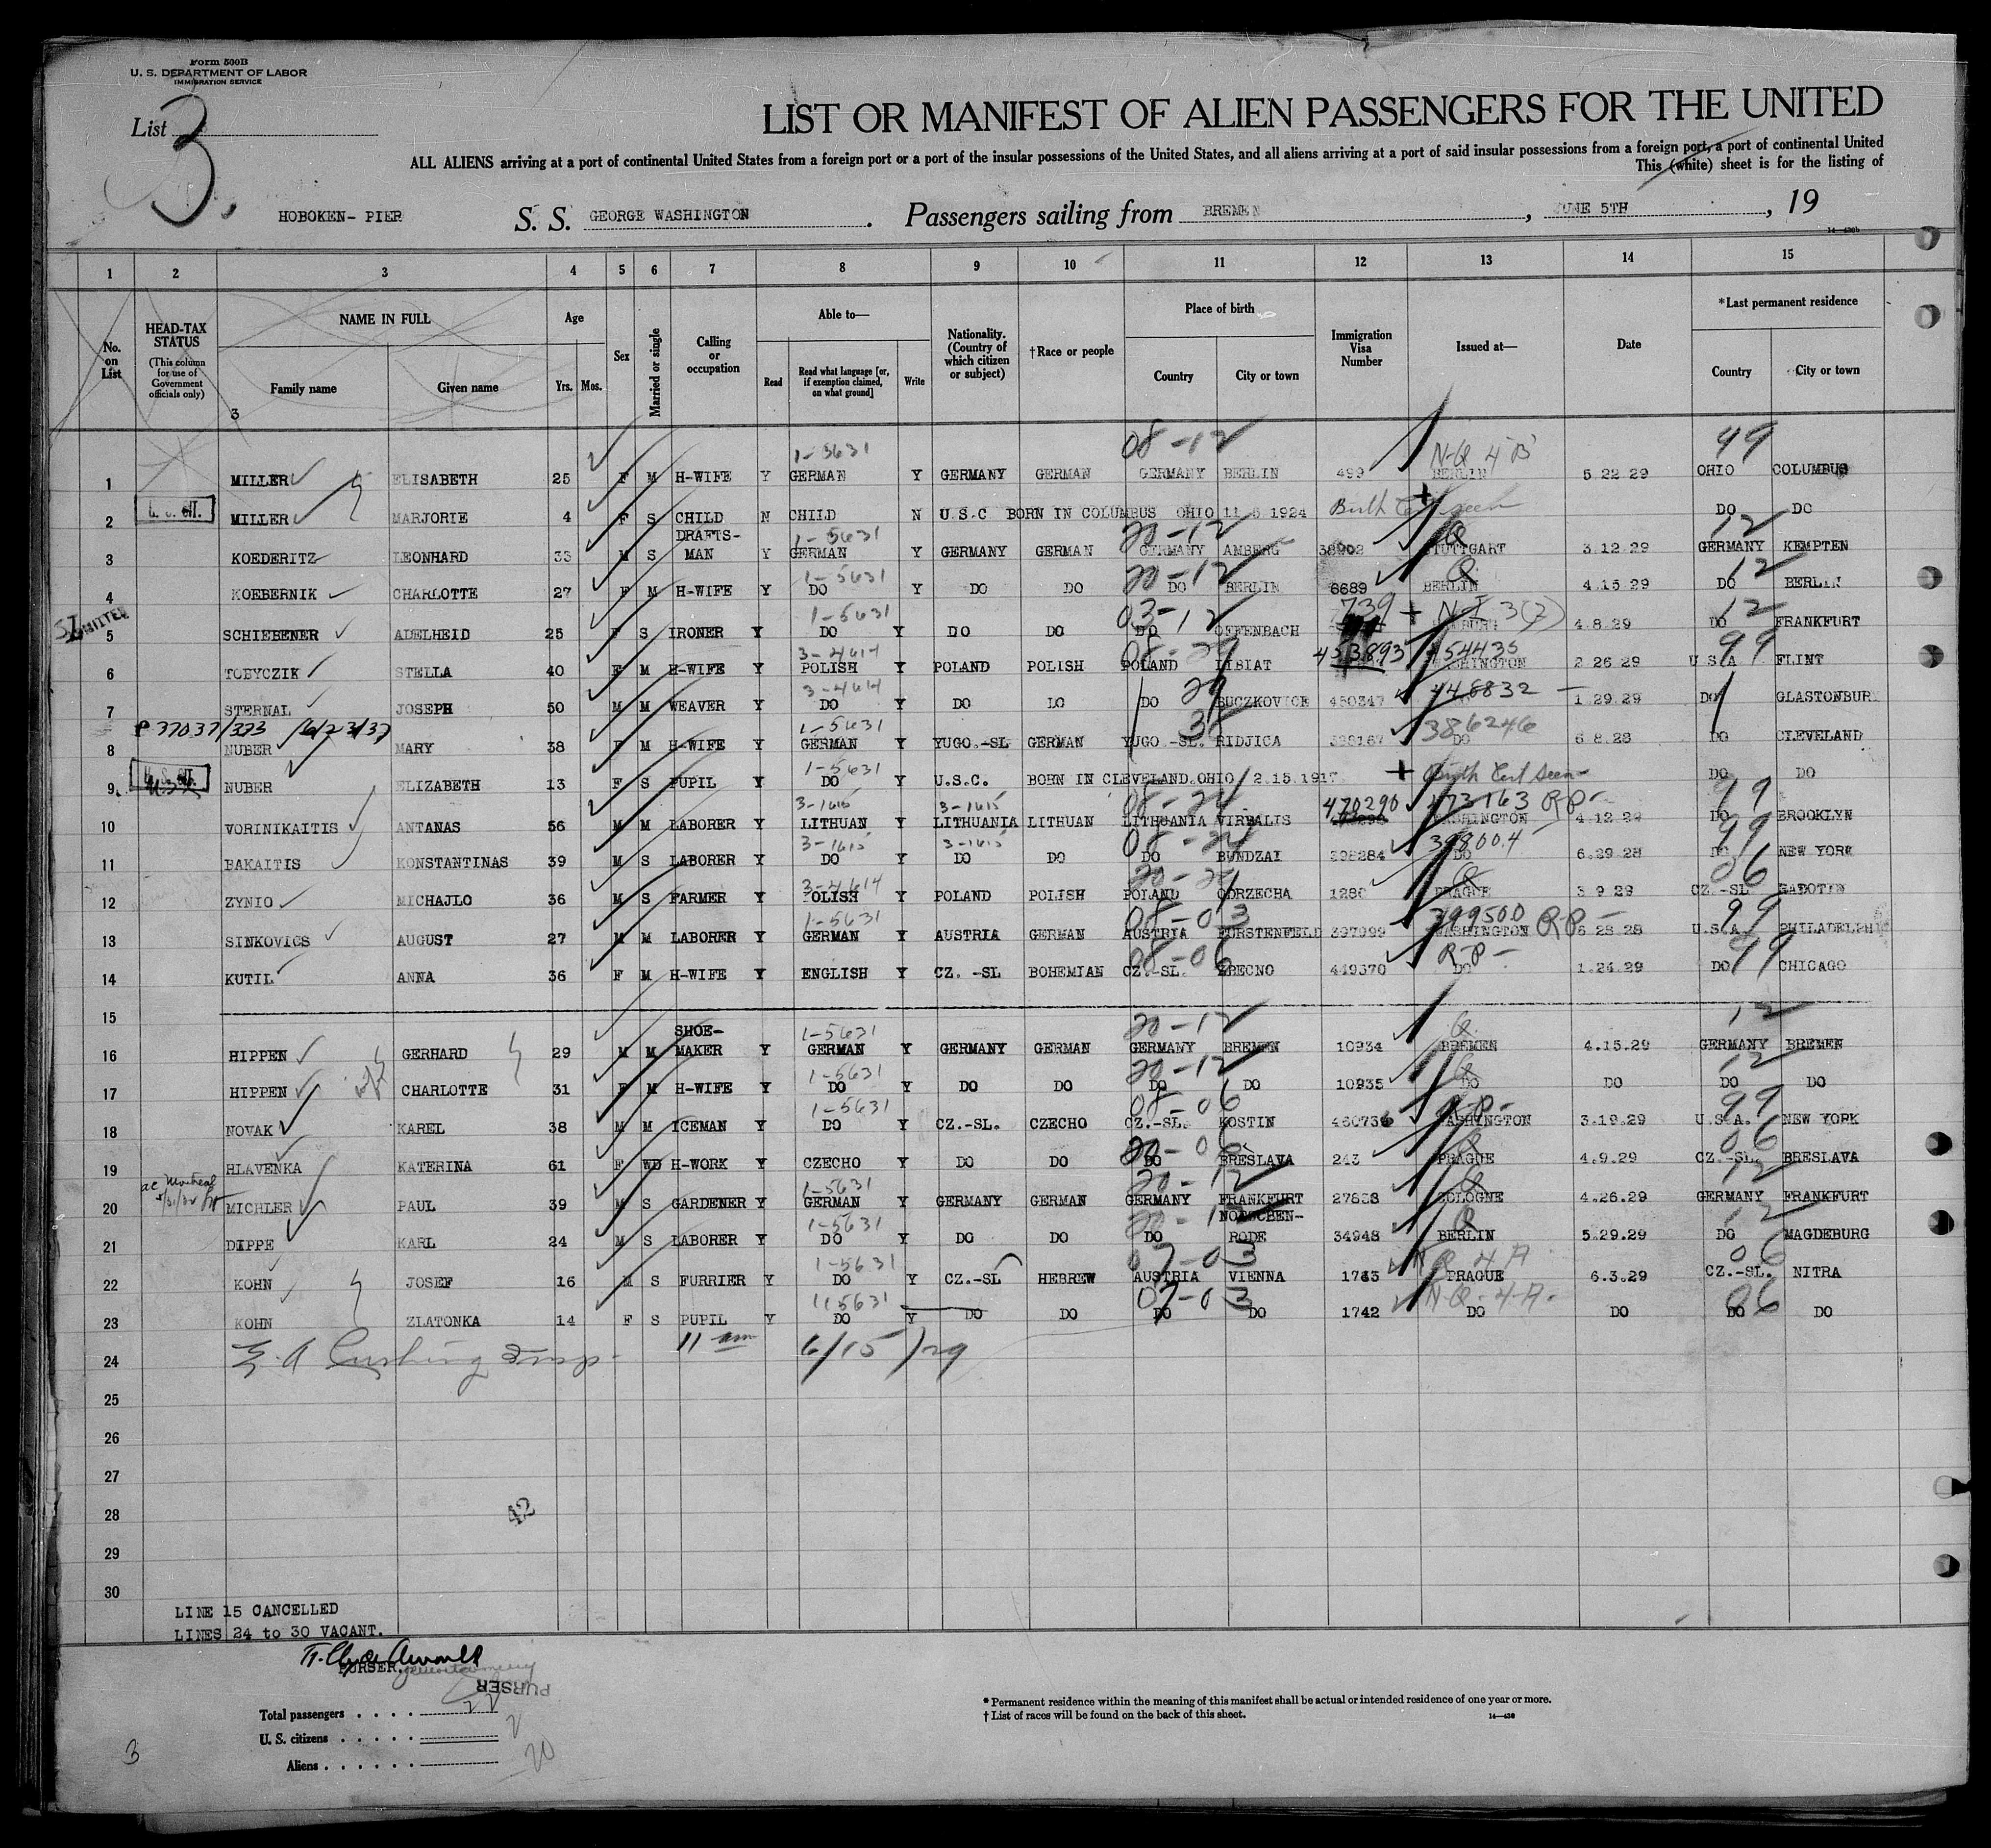 Form 500B
U. S. DEPARTMENT OF LABOR
IMMIGRATION SERVICE
List 3.
LIST OR MANIFEST OF ALIEN PASSENGERS FOR THE UNITED
ALL ALIENS arriving at a port of continental United States from a foreign port or a port of the insular possessions of the United States, and all aliens arriving at a port of said insular possessions from a foreign port, a port of continental United
This (white) sheet is for the listing of
HOBOKEN- PIER S. S. GEORGE WASHINGTON . Passengers sailing from BREMEN , JUNE 5TH , 19
1 2 3 4 5 6 7 8 9 10 11 12 13 14 15
No. on List
HEAD-TAX STATUS (This column for use of Government officials only)
NAME IN FULL Family name Given name
3
Age Yrs. Mos.
Sex
Married or single
Calling or occupation
Able to— Read Read what language [or, if exemption claimed, on what ground] Write
Nationality. (Country of which citizen or subject)
†Race or people
Place of birth Country City or town
Immigration Visa Number
Issued at—
Date
*Last permanent residence Country City or town
08-12 N-Q 4 B 99
1 MILLER ELISABETH 25 F M H-WIFE Y GERMAN Y GERMANY GERMAN GERMANY BERLIN 499 BERLIN 5 22 29 OHIO COLUMBUS
2 MILLER MARJORIE 4 F S CHILD N CHILD N U.S.C BORN IN COLUMBUS OHIO 11 5 1924 Birth Cert seen DO DO
1-5631 20-12 Q 12
3 KOEDERITZ LEONHARD 33 M S DRAFTS-MAN Y GERMAN Y GERMANY GERMAN GERMANY AMBERG 38902 STUTTGART 3.12.29 GERMANY KEMPTEN
1-5631 20-12 Q 12
4 KOEBERNIK CHARLOTTE 27 F M H-WIFE Y DO Y DO DO DO BERLIN 6689 BERLIN 4.15.29 DO BERLIN
1-5631 03-12 739 12
5 SCHIEBENER ADELHEID 25 F S IRONER Y DO Y DO DO DO OFFENBACH 4.8.29 DO FRANKFURT
3-4614 453893 454435 99
6 TOBYCZIK STELLA 40 F M H-WIFE Y POLISH Y POLAND POLISH POLAND LIBIAT WASHINGTON 2 26 29 U S A FLINT
3-4614 448832
7 STERNAL JOSEPH 50 M M WEAVER Y DO Y DO DO DO 450347 1.29.29 DO GLASTONBUR.
1-5631 386246
8 NUBER MARY 38 F M H-WIFE Y GERMAN Y YUGO.-SL GERMAN YUGO.-SL. RIDJICA DO 6 8.28 DO CLEVELAND
1-5631
9 NUBER ELIZABETH 13 F S PUPIL Y DO Y U.S.C. BORN IN CLEVELAND.OHIO 2.15.1917 Birth Cert Seen DO DO
3-1615 3-1615 470290 473163 RP- 99
10 VORINIKAITIS ANTANAS 56 M M LABORER Y LITHUAN Y LITHUANIA LITHUAN LITHUANIA VIRBALIS WASHINGTON 4.12 29 DO BROOKLYN
3-1615 3-1615 398004 99
11 BAKAITIS KONSTANTINAS 39 M S LABORER Y DO Y DO DO DO BUNDZAI 398284 DO 6.29.28 DO NEW YORK
3-4614 Q 06
12 ZYNIO MICHAJLO 36 M S FARMER Y POLISH Y POLAND POLISH POLAND ORZECHA 1280 PRAGUE 3 9.29 CZ.-SL
1-5631 08-03 399500 RP- 99
13 SINKOVICS AUGUST 27 M M LABORER Y GERMAN Y AUSTRIA GERMAN AUSTRIA FURSTENFELD 397999 WASHINGTON 6 28 28 U.S.A. PHILADELPHI
08-06 R-P- 99
14 KUTIL ANNA 36 F M H-WIFE Y ENGLISH Y CZ. -SL BOHEMIAN CZ.-SL. 449370 DO 1.24.29 DO CHICAGO
15
1-5631 20-12 Q 12
16 HIPPEN GERHARD 29 M M SHOE-MAKER Y GERMAN Y GERMANY GERMAN GERMANY BREMEN 10934 BREMEN 4.15.29 GERMANY BREMEN
1-5631 20-12 Q 12
17 HIPPEN CHARLOTTE 31 F M H-WIFE Y DO Y DO DO DO DO 10935 DO DO DO DO
1-5631 08-06 R-P- 99
18 NOVAK KAREL 38 M M ICEMAN Y DO Y CZ.-SL. CZECHO CZ.-SL. KOSTIN 460736 WASHINGTON 3.19.29 U.S.A. NEW YORK
20-06 Q 06
19 HLAVENKA KATERINA 61 F WD H-WORK Y CZECHO Y DO DO DO BRESLAVA 243 PRAGUE 4.9.29 CZ.-SL. BRESLAVA
1-5631 20-12 Q 12
20 MICHLER PAUL 39 M S GARDENER Y GERMAN Y GERMANY GERMAN GERMANY FRANKFURT 27838 COLOGNE 4.26.29 GERMANY FRANKFURT
1-5631 20-12 Q 12
21 DIPPE KARL 24 M S LABORER Y DO Y DO DO DO RODE 34948 BERLIN 5.29.29 DO MAGDEBURG
1-5631 07-03 NQ-4-A 06
22 KOHN JOSEF 16 M S FURRIER Y DO Y CZ.-SL HEBREW AUSTRIA VIENNA 1743 PRAGUE 6.3.29 CZ.-SL. NITRA
1-5631 07-03 N-Q-4-A- 06
23 KOHN ZLATONKA 14 F S PUPIL Y DO Y DO DO DO DO 1742 DO DO DO DO
24 E. A Cushing Insp- 11 am 6/15/29
25
26
27
28
42
29
30
LINE 15 CANCELLED
LINES 24 to 30 VACANT.
PURSER.
PURSER
Total passengers . . . . 22
U. S. citizens . . . . . . 2
Aliens . . . . . . 20
3
* Permanent residence within the meaning of this manifest shall be actual or intended residence of one year or more.
† List of races will be found on the back of this sheet.